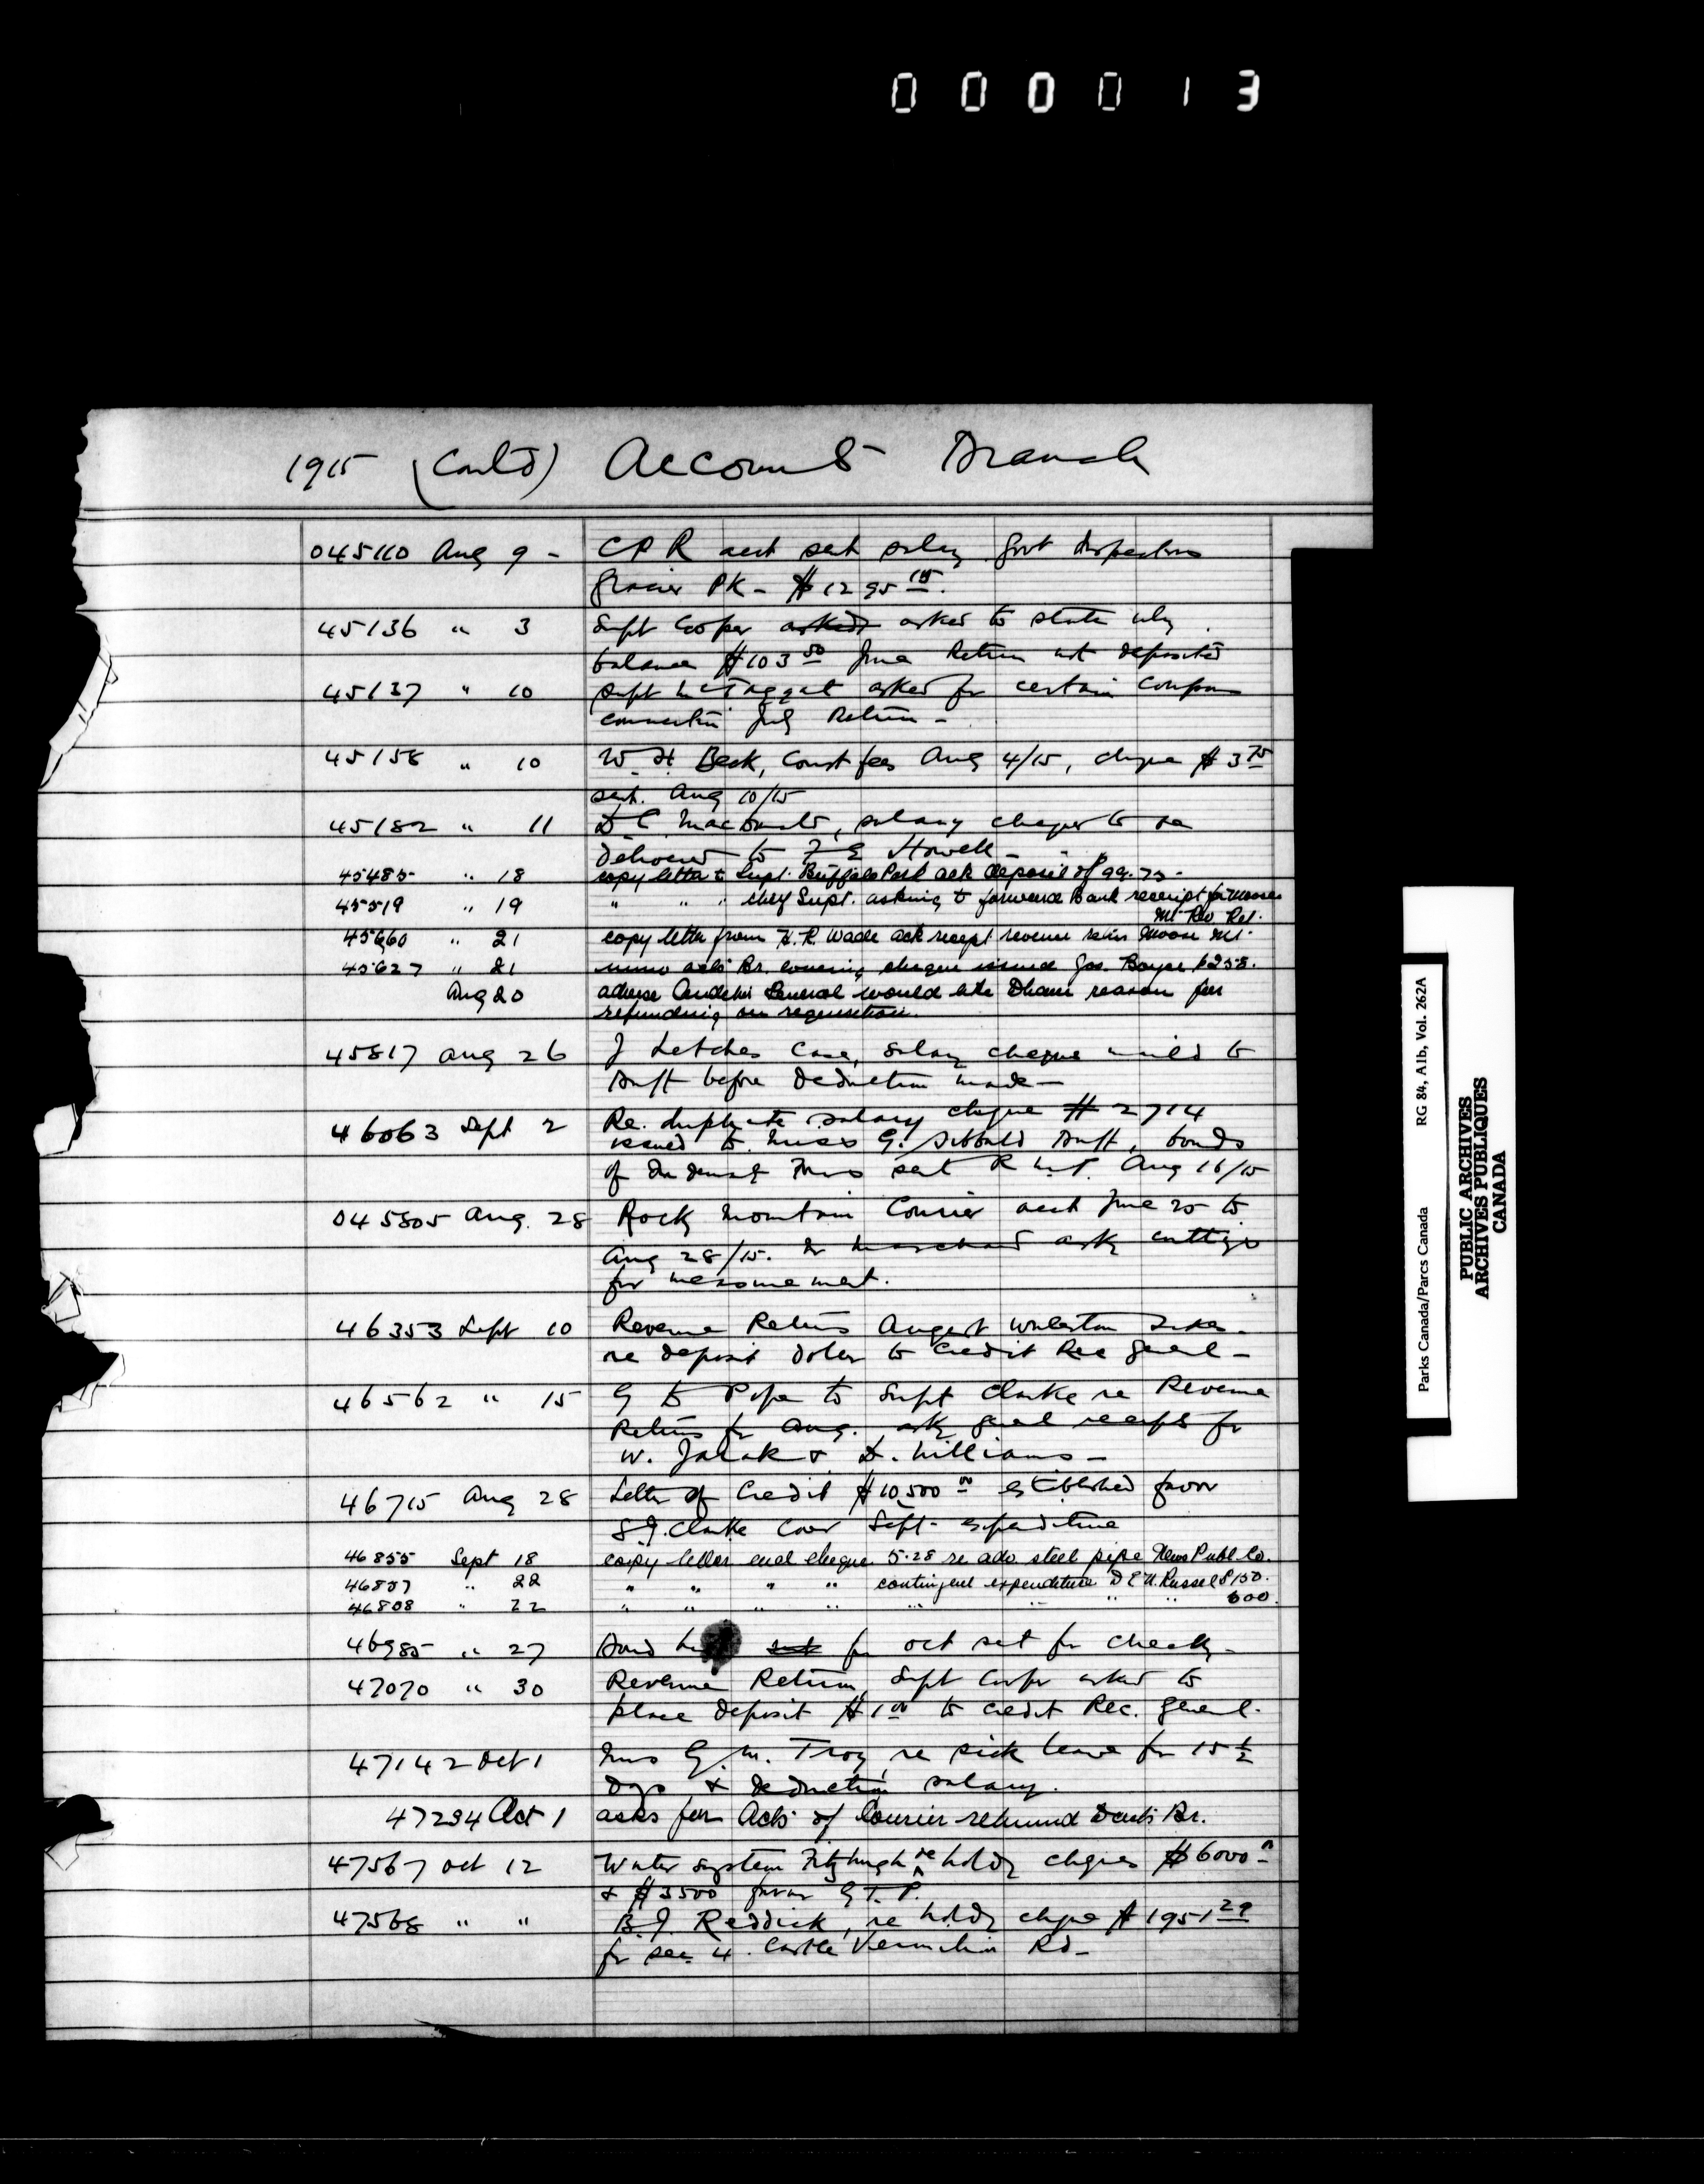 000013
1915 (Contd) Accounts Branch
045110 Aug 9 - CPR acct sent salary Govt Inspectors
Glacier PK - $1295 15.
45136 " 3 Supt Cooper asked to state why
balance $103 50 June Return not deposited
45137 " 10 Supt McTaggart asked for certain coupons
connection July Return -
45158 " 10 W. H. Beck, Court fees Aug 4/15, cheque $3 75
sent. Aug 10/15
45182 " 11 D C MacDonald, salary cheques to be
delivered to F E Howell -
45485 " 18 copy letter to Supt. Buffalo Park ack deposit of 99.75 -
45519 " 19 " " " Chief Supt. asking to forward Bank receipt for Moose
Mt Rev Ret.
45660 " 21 copy letter from H.R. Wade ack receipt revenue retn Moose Mt.
45627 " 21 memo accts Br. covering cheque issued Jas. Boyce $258.
Aug 20 advise Auditor General would like to have reason for
refunding on requisition.
45817 Aug 26 J Letcher Case, salary cheque mailed to
Banff before deduction made -
46063 Sept 2 Re. duplicate salary cheque # 2714
issued to Miss G. Sibbald Banff, bonds
of Indemnity Forms sent Aug 16/15
045805 Aug. 28 Rocky Mountain Courier acct June 25 to
Aug 28/15. Mr Marchand asks cuttings
for measurement.
46353 Sept 10 Revenue Returns August Waterton Lakes.
re deposit to credit Rec General -
46562 " 15 to Supt Clarke re Revenue
Returns for Aug. ask general receipts for
W. & D. Williams -
46715 Aug 28 Letter of Credit $10,500 00 established favor
S.J. Clarke Cover Sept - expenditure
46855 Sept 18 copy letter encl cheque 5.28 re adv steel pipe News Publ Co.
46857 " 22 " " " " contingent expenditure D E W. Russel $150.
46808 " 22 " " " " " " " " 600.
46985 " 27 for oct sent for check -
47070 " 30 Revenue Return, Supt Cooper asked to
place deposit $1 00 to credit Rec. General.
47142 Oct 1 Miss G. M. Troy, re sick leave for 15 1/2
Dys & deduction salary.
47294 Oct 1 asks for Accts of Courier returned Br.
47567 Oct 12 Water system Fitzhugh re holdg cheques $6000 00
& $3500 favor G T. P.
47568 " " B J Reddick, re holdg cheque $1951 29
for sec 4. Castle Vermilion Rd -
Parks Canada/Parcs Canada RG 84, A1b, Vol. 262A
PUBLIC ARCHIVES
ARCHIVES PUBLIQUES
CANADA